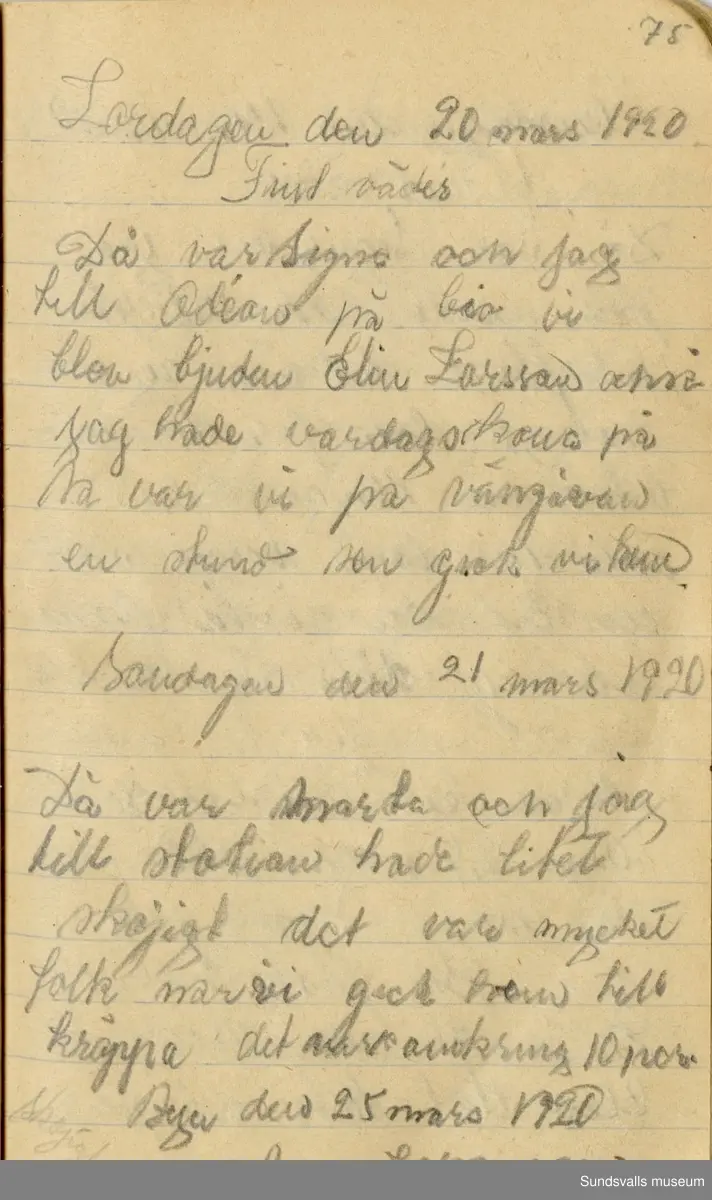 75
Lördagen den 20 mars 1920
Fint väder
Då var Signe och jag
till Odéon på bio vi
blev bjuden Elin Larsson och
jag hade vardagskona på
då var vi på vängåvan
en stund sen gick vi hem
Söndagen den 21 mars 1920
Då var Marta och jag
till station hade litet
skojigt det var mycket
folk när vi gick hem till
kråppa det var omkring 10 per.
Byn den 25 mars 1920
Sundsvalls museum